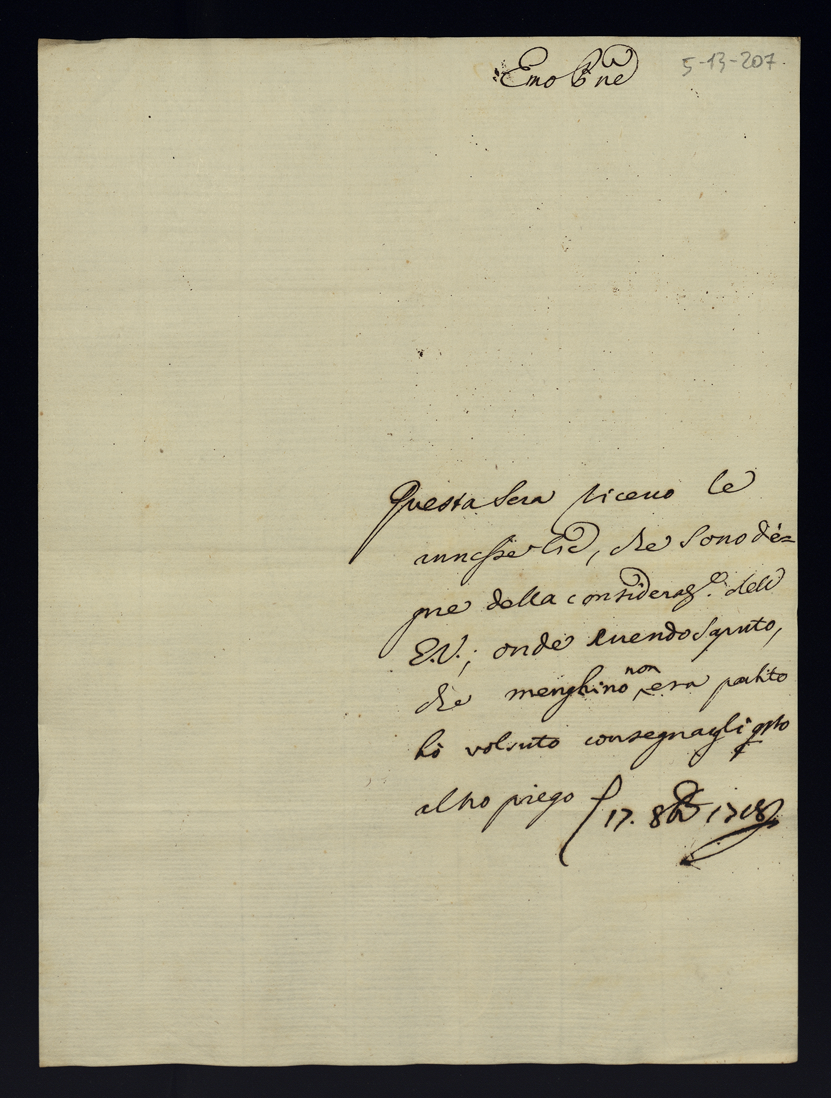 Emo Pne 5-13-207.
Questa sera riceuo le
annesse, che sono de=
gne della consideraz.e dell
E.V.; onde auendo saputo,
che menghino non era partito
hò volsuto consegnagli qsto
altro piego 17. 8bre 1718